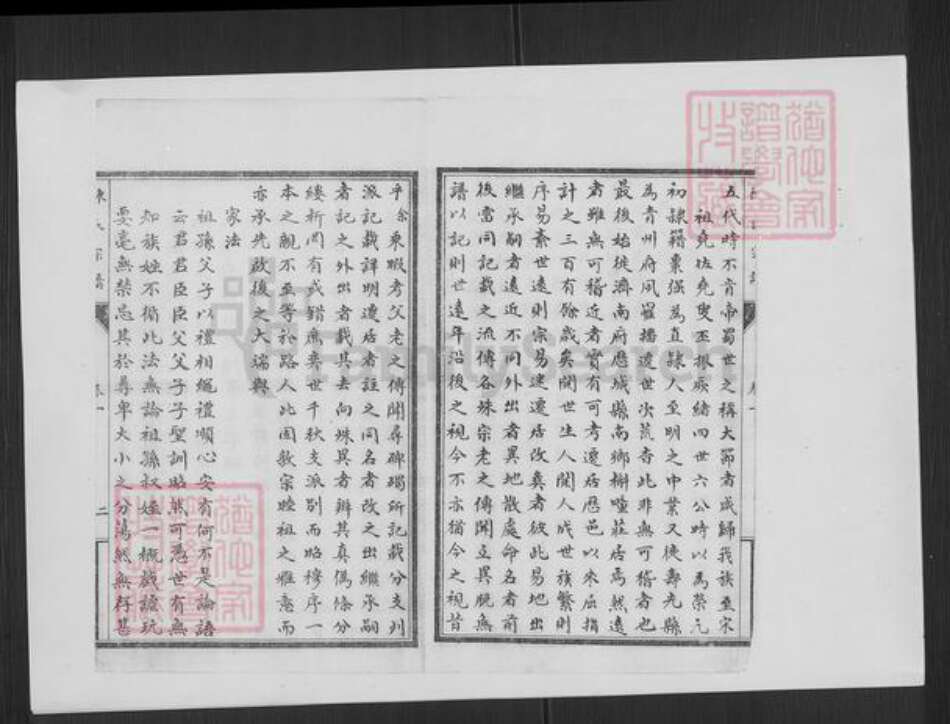 五代時不肯帝蜀世之稱大節者咸歸我族至宋
祖堯佐堯叟丕振厥緒四世六公時以為榮元
初隸籍棗强為直隸人至明之中葉又徙壽光縣
為青州府夙羅播遷世次荒杳此非無可稽者也
最後始徙濟南府歷城縣南鄉槲疃莊居焉然遠
者雖無可稽近者實有可考遷居歷邑以來屈指
計之三百有餘歲矣閱世生人閱人成世族繁則
序易紊世遠則宗易迷遷居改奠者彼此易地出
繼承嗣者遠近不同外出者異地散處命名者前
後當同記載之流傳各殊宗老之傳聞互異脫無
譜以記則世遠年沿後之視今不亦猶今之視昔
乎余東暇考父老之傳聞尋碑碣所記載分支列
派記載詳明遷居者註之同名者改之出繼承嗣
者記之外出者載其去向殊異者辨其真偽條分
縷析間有或錯為奕世千秋支派別而昭穆序一
本之親不至等於路人此固敦宗睦祖之雅意而
亦承先啟後之大端與
家法
祖孫父子以禮相繩禮順心安有何不是論語
云君君臣臣父父子子聖訓昭然可憑世有無
知族姪不循此法無論祖孫叔姪一概戲謔玩
耍毫無禁忌其於尊卑大小之分蕩然無存甚
卷一
二
FamilySearch